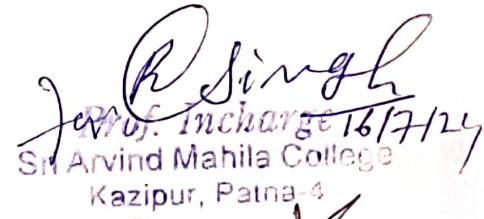 R Singh
for Prof. Incharge 16/7/24
Sri Arvind Mahila College
Kazipur, Patna-4